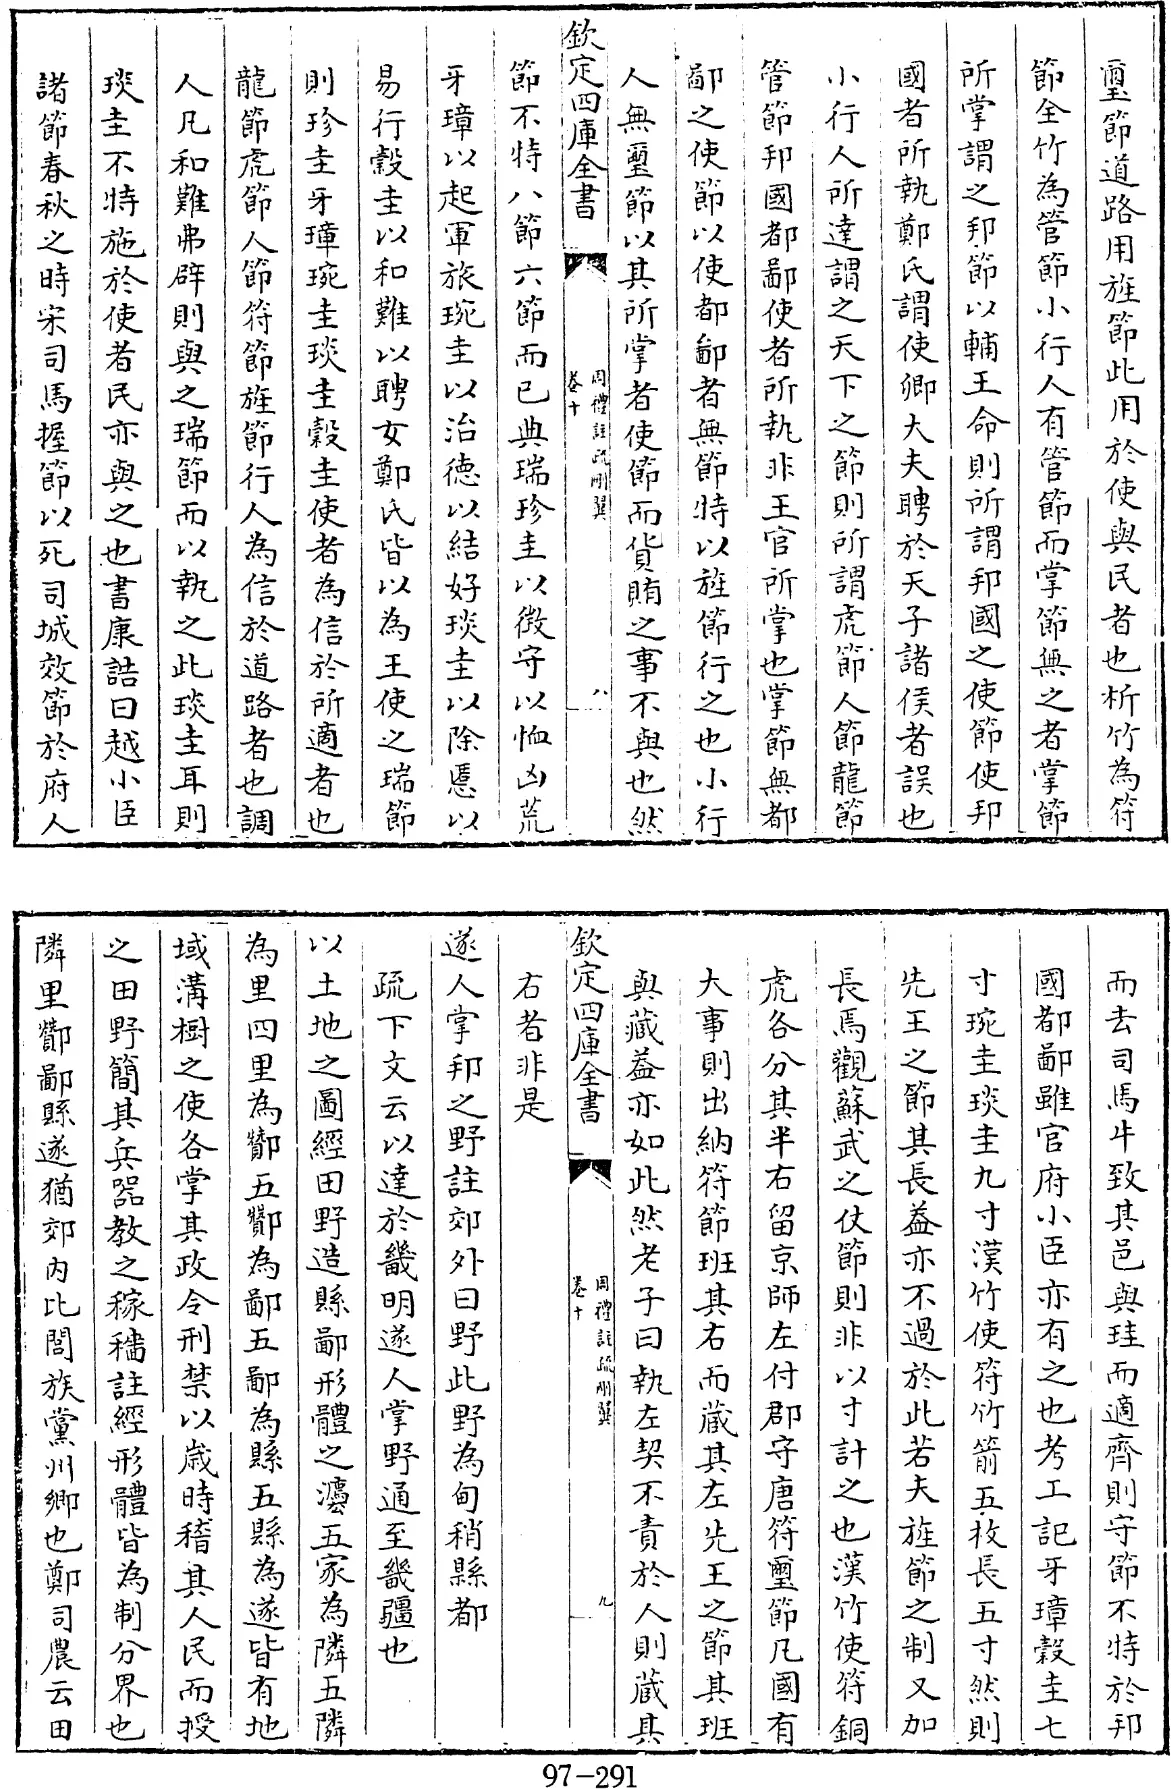 璽節道路用旌節此用於使與民者也析竹為符
節全竹為管節小行人有管節而掌節無之者掌節
所掌謂之邦節以輔王命則所謂邦國之使節使邦
國者所執鄭氏謂使卿大夫聘於天子諸侯者誤也
小行人所達謂之天下之節則所謂虎節人節龍節
管節邦國都鄙使者所執非王官所掌也掌節無都
鄙之使節以使都鄙者無節特以旌節行之也小行
人無璽節以其所掌者使節而貨賄之事不與也然
欽定四庫全書
周禮註疏刪翼
卷十
八
節不特八節六節而已典瑞珍圭以徵守以恤凶荒
牙璋以起軍旅琬圭以治德以結好琰圭以除慝以
易行穀圭以和難以聘女鄭氏皆以為王使之瑞節
則珍圭牙璋琬圭琰圭穀圭使者為信於所適者也
龍節虎節人節符節旌節行人為信於道路者也調
人凡和難弗辟則與之瑞節而以執之此琰圭耳則
琰圭不特施於使者民亦與之也書康誥曰越小臣
諸節春秋之時宋司馬握節以死司城效節於府人
而去司馬牛致其邑與珪而適齊則守節不特於邦
國都鄙雖官府小臣亦有之也考工記牙璋穀圭七
寸琬圭琰圭九寸漢竹使符竹箭五枚長五寸然則
先王之節其長葢亦不過於此若夫旌節之制又加
長焉觀蘇武之仗節則非以寸計之也漢竹使符銅
虎各分其半右留京師左付郡守唐符璽節凡國有
大事則出納符節班其右而藏其左先王之節其班
與藏葢亦如此然老子曰執左契不責於人則藏其
欽定四庫全書
周禮註疏刪翼
卷十
九
右者非是
遂人掌邦之野註郊外曰野此野為甸稍縣都
疏下文云以達於畿明遂人掌野通至畿疆也
以土地之圖經田野造縣鄙形體之灋五家為隣五隣
為里四里為酇五酇為鄙五鄙為縣五縣為遂皆有地
域溝樹之使各掌其政令刑禁以歲時稽其人民而授
之田野簡其兵器教之稼穡註經形體皆為制分界也
隣里酇鄙縣遂猶郊內比閭族黨州鄉也鄭司農云田
97-291